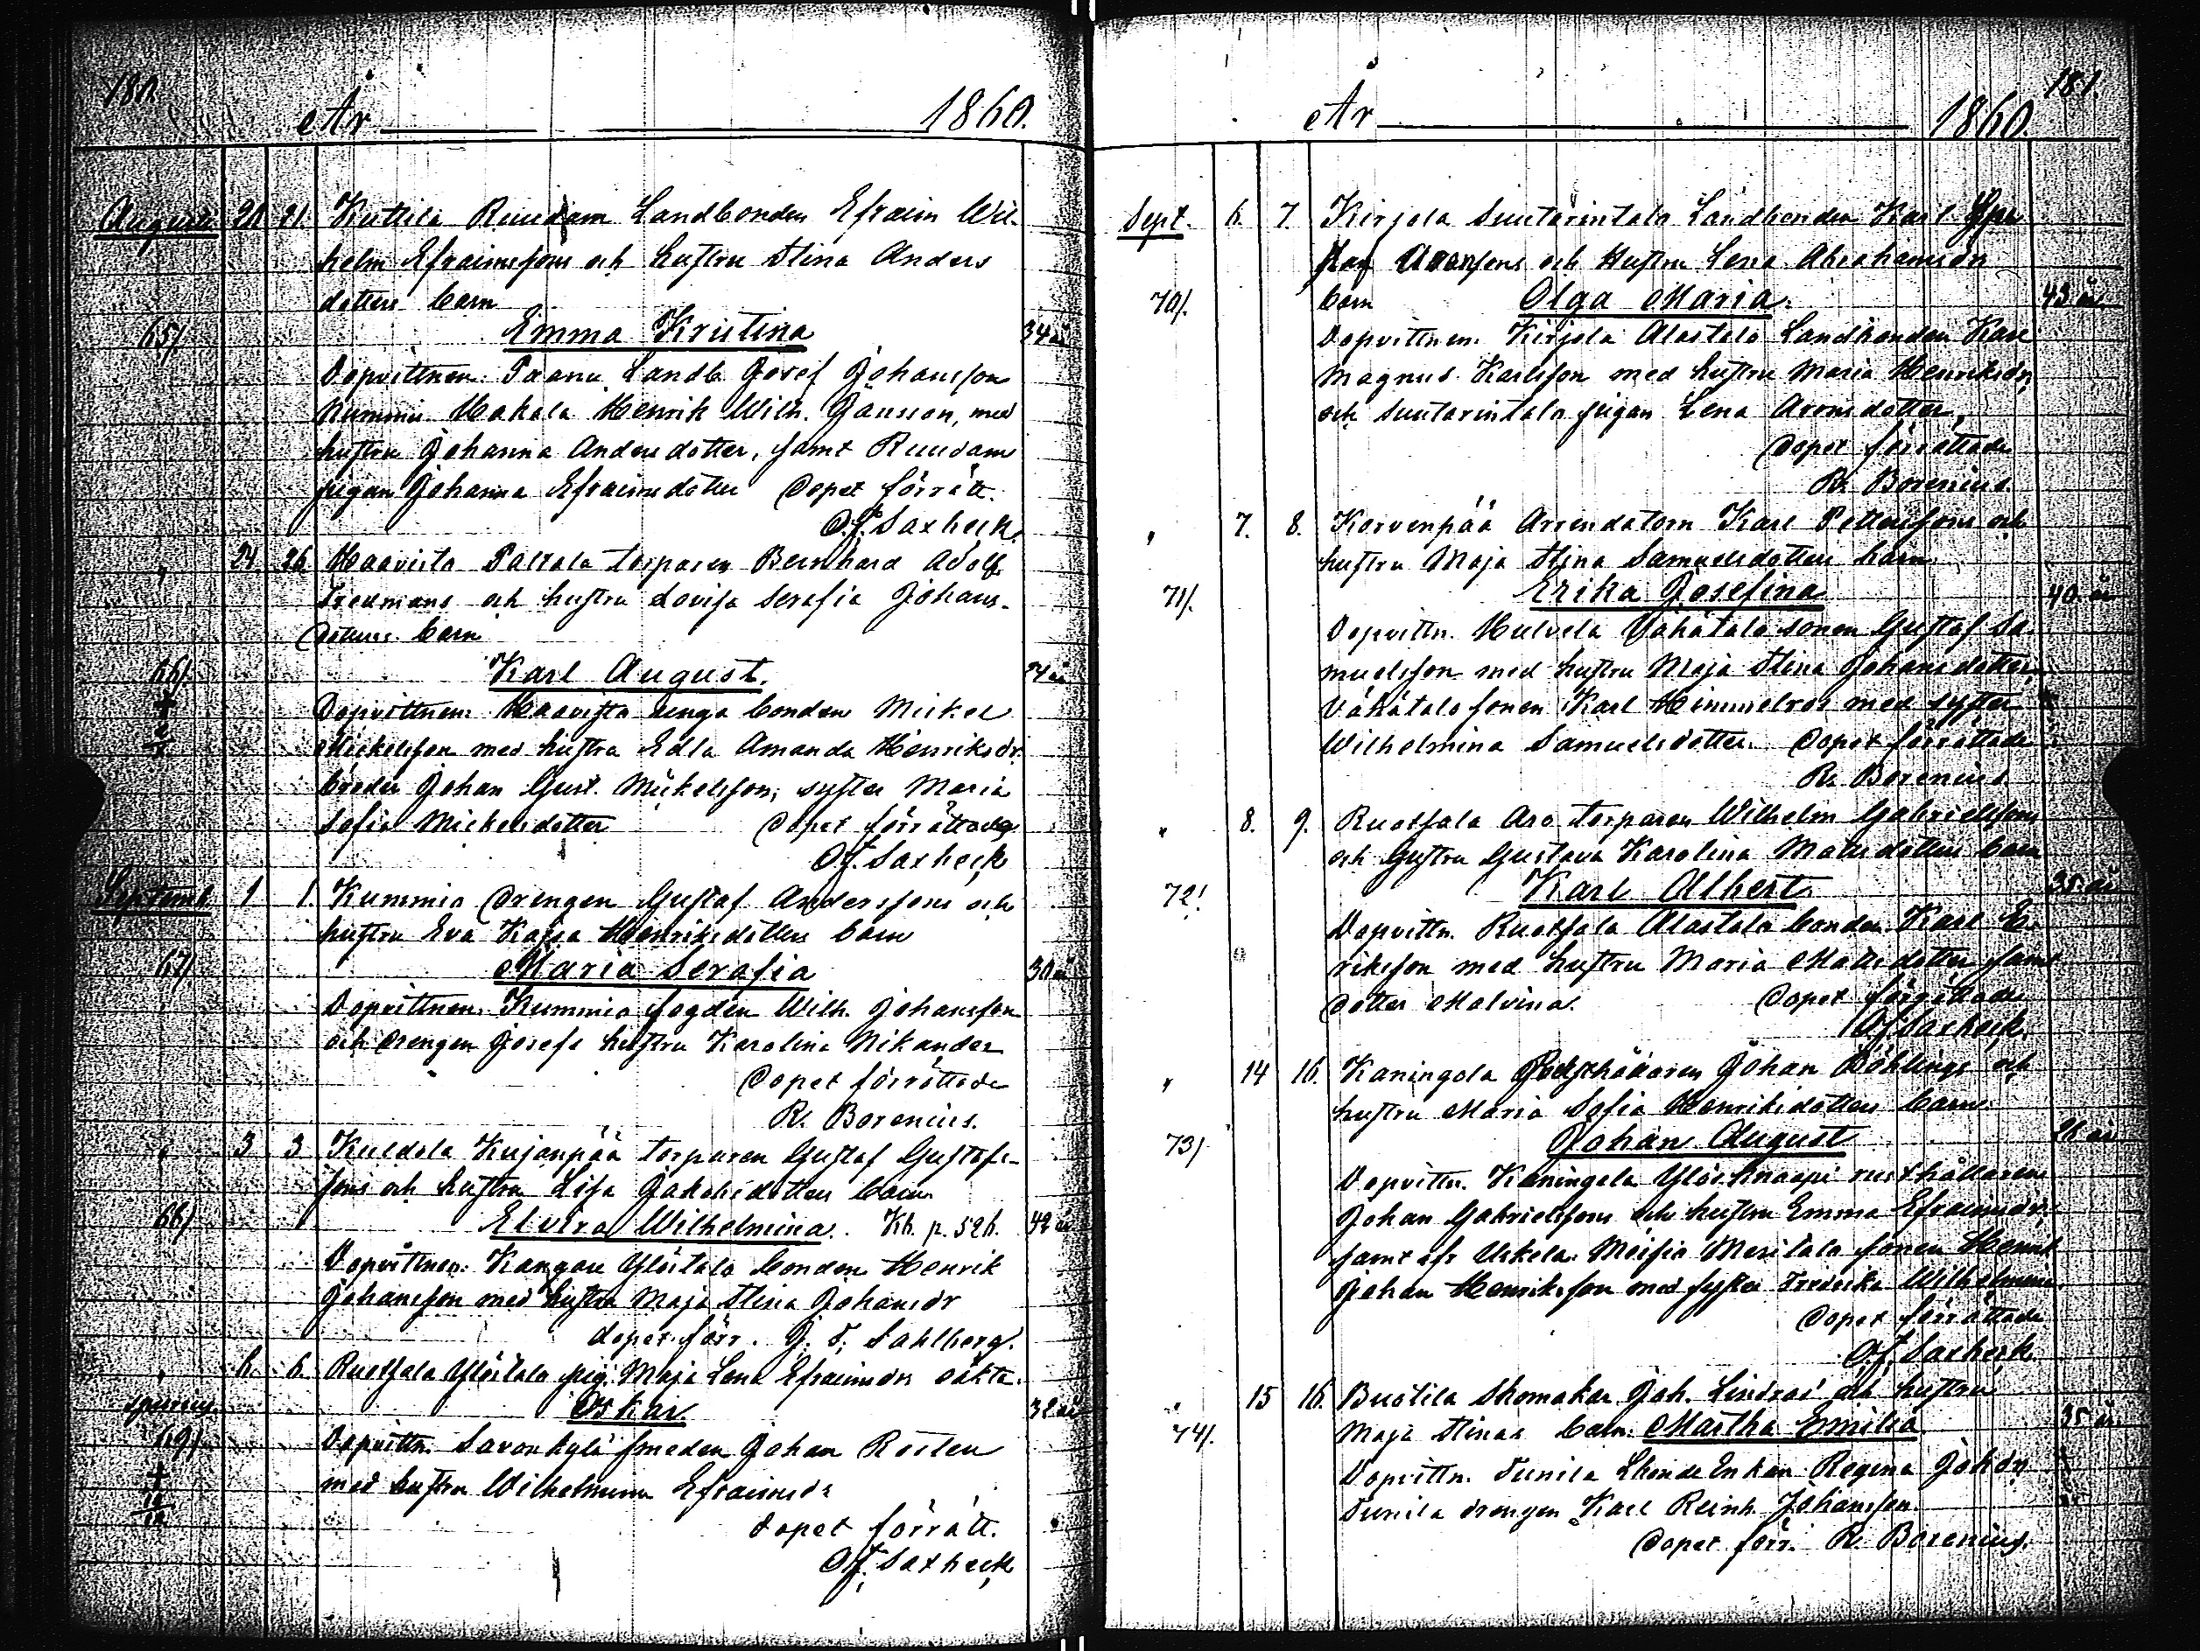 180.
År 1860.
Augusti 20. 21. Kuttila Ruudam Landbonden Efraim Wil-
helm Efraimssons och hustru Stina Anders
dotters barn
65/. Emma Kristina 34 år
Dopvittnen: Paanu Landb. Josef Johansson
Nummi Makala Henrik Wilh. Jansson, med
hustru Johanna Andersdotter, samt Ruudam
pigan Johanna Efraimsdotter Dopet förrätt.
O.f. Saxbeck.
„ 24 26 Haavisto Paltala torparen Bernhard Adolf
Fredmans och hustru Lovisa Serafia Johans-
dotters barn
66/. Karl August. 24 år
Dopvittnen: Haavisto Jenga bonden Mickel
Mickelsson med hustru Edla Amanda Henriksdr.
broder Johan Gust. Mickelsson, syster Maria
Sofia Mickelsdotter Dopet förrättade
O.f. Saxbeck
Septemb. 1 1. Kummia Drengen Gustaf Anderssons och
hustru Eva Kajsa Henriksdotters barn
67/. Maria Serafia 30 år
Dopvittnen: Kummia fogden Wilh. Johansson
och drengen Josefs hustru Karolina Nikander
Dopet förrättade
R. Borenius.
„ 3 3 Kuldola Kujanpää torparen Gustaf Gustafs-
sons och hustru Lisa Jakobsdotters barn
68/. Elvira Wilhelmina. Kb. p. 526. 42 år
Dopvittnen: Kangare Ylöstalo bonden Henrik
Johansson med hustru Maja Stina Johansdr
dopet förr. J. F. Sahlberg.
„ 6. 6. Ruotsala Ylöstalo pig. Maja Lena Efraimsdrs oäkta
spurius Oskar 32 år
69/. Dopvittn. Savonkylä smeden Johan Rosten
med hustru Wilhelmina Efraimsdr
dopet förrätt.
O.f. Saxbeck
181.
År 1860.
Sept. 6. 7. Kirjola Suutarintalo Landbonden Karl
Aronsons och Hustru Lena Abrahamsdrs
70/. barn Olga Maria. 43 år
Dopvittnen: Kirjola Alastalo Landbonden Karl
Magnus Karlsson med hustru Maria Henriksdr,
och Suutarintalo pigan Lena Aronsdotter,
Dopet förrättade
R. Borenius.
„ 7. 8. Korvenpää Arrendatorn Karl Petterssons och
hustru Maja Stina Samuelsdotters barn
71/. Erika Josefina 40 år
Dopvittn. Hulvela Vähätalo sonen Gustaf Sa-
muelsson med hustru Maja Stina Johansdotter,
Vähätalo sonen Karl Himmelros med syster
Wilhelmina Samuelsdotter. Dopet förrättade
R. Borenius
„ 8. 9. Ruotsala Aro torparen Wilhelm Gabrielssons
och Hustru Gustava Karolina Matsdotters barn
72/. Karl Albert 35 år
Dopvittn. Ruotsala Alastalo bonden Karl E-
riksson med hustru Maria Matsdotter samt
dotter Malvina. Dopet förrättade
O.f. Saxbeck.
„ 14 16. Kaningola Rusthållaren Johan Böhlings och
hustru Maria Sofia Henriksdotters barn
73/. Johan August 26 år
Dopvittn. Kaningola Ylös-Knaapi rusthållaren
Johan Gabrielssons och hustru Emma Efraimsdr,
samt ifr. Uskela Moisio Mesitalo sonen Henrik
Johan Henriksson med syster Fredrika Wilhelmina
Dopet förrättade
O.f. Saxbeck.
„ 15 16. Buotila Skomakar Joh. Lindros' och hustru
74/. Maja Stinas barn: Martha Emilia 35 år
Dopvittn. Tunila Lbonde Enkan Regina Johdr,
Tunila drengen Karl Reinh. Johansson.
Dopet förr. R. Borenius.